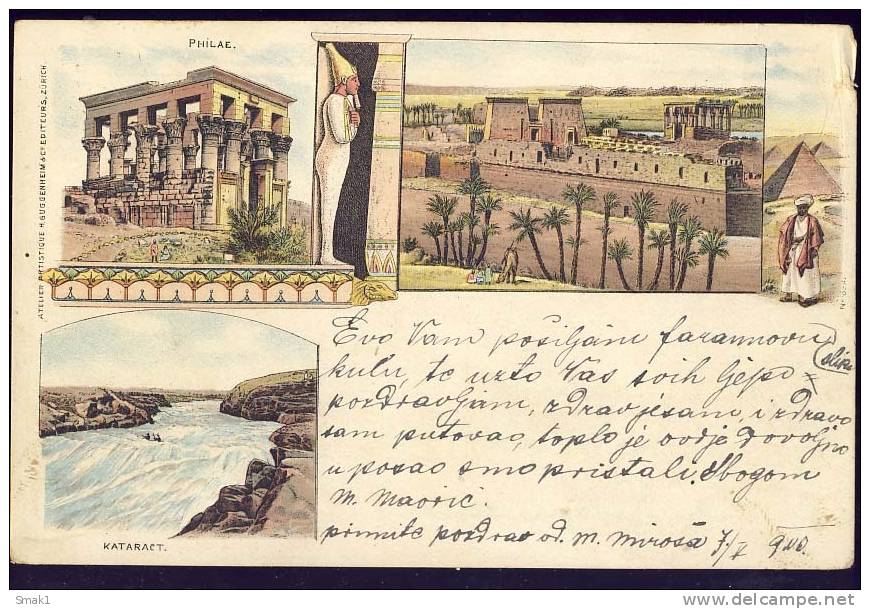 PHILAE.
ATELIER ARTISTIQUE H. GUGGENHEIM & Cº EDITEURS, ZÜRICH
Evo Vam pošiljam faraunovu
sliku
kulu, te uzto Vas svih ljepo =
pozdravljam, zdrav jesam, i zdravo
sam putovao, toplo je ovdje dovoljno
u posao smo pristali. Sbogom
M. Maorić.
primite pozdrav od M. Miroša 7/V 900.
KATARACT.
Smak1
delcampe.net